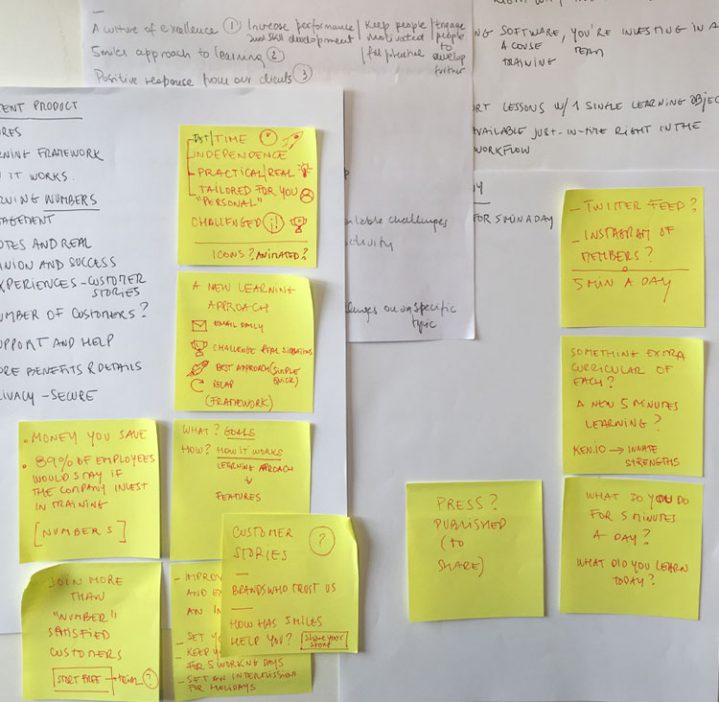 A culture of excellence ① Increase performance and skill development / Keep people motivated / Engage people to develop further
Smiles approach to learning ②
Positive response from our clients ③
NG SOFTWARE, YOU'RE INVESTING IN A
TEAM
TRAINING
RT LESSONS W/ 1 SINGLE LEARNING OBJEC
AVAILABLE JUST-IN-TIME RIGHT IN THE
WORKFLOW
FOR 5 MIN A DAY
ENT PRODUCT
RES
RNING FRAMEWORK
IT WORKS.
RNING NUMBERS
AGEMENT
OTES AND REAL
NION AND SUCCESS
XPERIENCES - CUSTOMER STORIES
UMBER OF CUSTOMERS?
UPPORT AND HELP
ORE BENEFITS & DETAILS
IVACY - SECURE
ilable challenges
ctivity
llenges on a specific
topic
TIME
INDEPENDENCE
PRACTICAL/REAL
TAILORED FOR YOU
"PERSONAL"
CHALLENGED
ICONS? ANIMATED?
A NEW LEARNING
APPROACH
EMAIL DAILY
CHALLENGE REAL SITUATIONS
BEST APPROACH (SIMPLE QUICK)
RECAP
(FRAMEWORK)
WHAT? GOALS
HOW? HOW IT WORKS
LEARNING APROACH
↓
FEATURES
• MONEY YOU SAVE
• 89% OF EMPLOYEES
WOULD STAY IF
THE COMPANY INVEST
IN TRAINING
[NUMBERS]
JOIN MORE
THAN
"NUMBER"
SATISFIED
CUSTOMERS
START FREE → TRIAL ?
- IMPROV
AND E
AN IN
- SET YO
- KEEP U
FOR 5 WORKING DAYS
- SET AN INTERMISSION
FOR HOLIDAYS
CUSTOMER
STORIES
?
—
BRANDS WHO TRUST US
—
HOW HAS SMILES
HELP YOU? Share your story
PRESS?
PUBLISHED
(TO
SHARE)
- TWITTER FEED?
- INSTAGRAM OF
MEMBERS?
5 MIN A DAY
SOMETHING EXTRA
CURRICULAR OF
EACH?
A NEW 5 MINUTES
LEARNING?
KEN.IO → INNATE
STRENGTHS
WHAT DO YOU DO
FOR 5 MINUTES
A DAY?
WHAT DID YOU LEARN
TODAY?